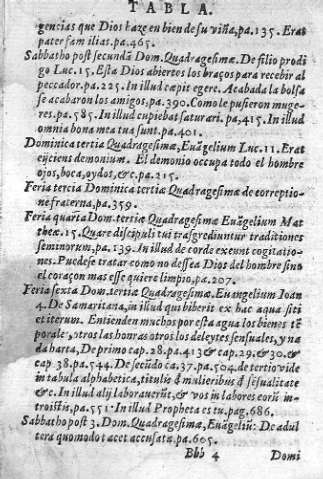 TABLA.
gencias que Dios haze en bien de su viña, pa. 135. Erat
pater familias. pa. 465.
Sabbatho post secundā Dom. Quadragesimæ. De filio prodi
go Luc. 15. Està Dios abiertos los braços para recebir al
peccador. pa. 225. In illud cœpit egere. Acabada la bolsa
se acabaron los amigos, pa. 390. Como le pusieron muge-
res. pa. 585. In illud cupiebat saturari. pa, 415. In illud
omnia bona mea tua sunt. pa. 401.
Dominica tertia Quadragesimæ, Euāgelium Luc. 11. Erat
eijciens demonium. El demonio occupa todo el hombre
ojos, boca, oydos, &c. pa. 215.
Feria tercia Dominica tertiæ Quadragesimæ de correptio-
ne fraterna, pa. 359.
Feria quarta Dom. tertiæ Quadragesimæ Euāgelium Mat
thæx. 15. Quare discipuli tui trasgrediuntur traditiones
seminorum, pa. 139. In illud de corde exeunt cogitatio-
nes. Puedese tratar como no dessea Dios del hombre sino
el coraçon mas esse quiere limpio, pa. 207.
Feria sexta Dom. tertiæ Quadragesimæ, Euangelium Ioan
4. De Samaritana, in illud qui biberit ex hac aqua siti
et iterum. Entienden muchos por esta agua los bienes tē
porales, otros las honras otros los deleytes sensuales, y na
da harta, De primo cap. 28. pa. 413 & cap. 29, & 30. &
cap 38. pa. 544. De secūdo ca. 37. pa. 504. de tertio vide
in tabula alphabetica, titulis d mulieribus d sēsualitate
&c. In illud alij laborauerūt, & vos in labores eorū in-
troistis, pa. 551. In illud Propheta es tu. pag. 686.
Sabbatho post 3. Dom. Quadragesimæ, Euageliū: De adul
tera quomodo tacet accusata. pa. 605.
Bbb 4 Domi